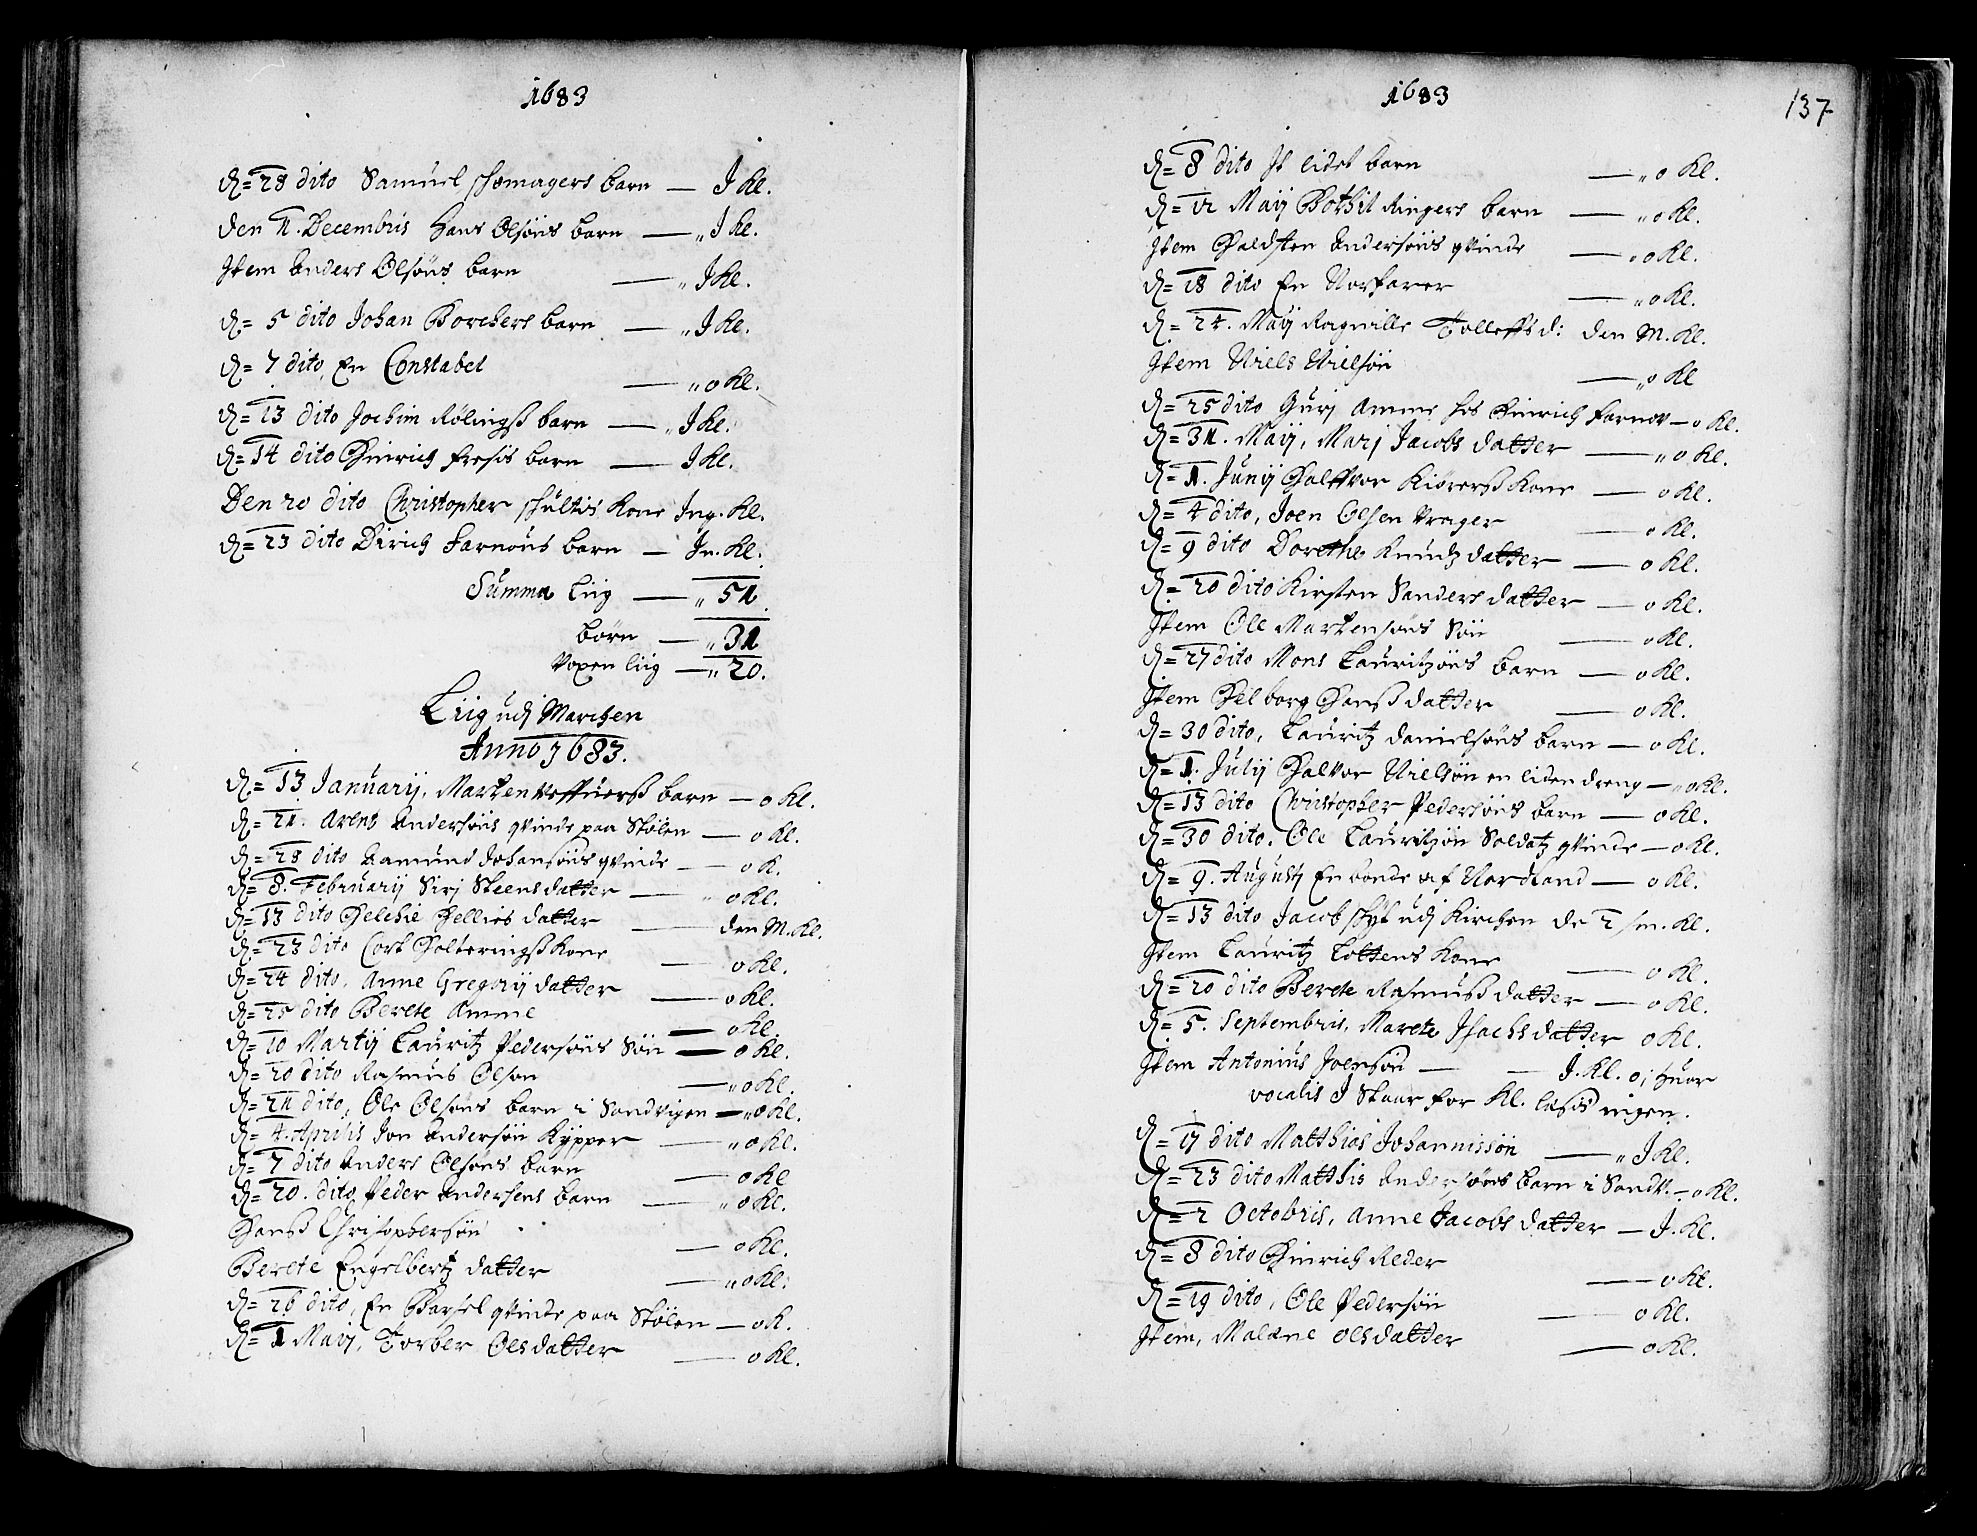 1683
D= 28 dito Samuel skomagers barn — I Kl.
Den 1. Decembris Hans Olsøns barn — „ I Kl.
Item Anders Olsøns barn — „ I Kl.
D= 5 dito Johan Borchers barn — „ I Kl.
D= 7 dito, En Constabel — „ o Kl.
D= 13 dito Jochim Rølingß barn — „ I Kl.
D= 14 dito Hinrich Freses barn — I Kl.
Den 20 dito Christopher Kone Ing. Kl.
D= 23 dito Dirich Farnous barn — In. Kl.
Summa Liig — „ 51
børn — „ 31
Voxen liig — „ 20.
Liig udj Marchen
Anno 1683.
D= 13 Januarij, Marten barn — o Kl.
D= 21. Arent Andersøns qvinde paa Stølen — o Kl.
D= 28 dito Aamund Johansøns qvinde — o K.
D= 8. Februarij Sirj Steensdatter — o Kl.
D= 13 dito datter — den M. Kl.
D= 23 dito Cort Kone — o Kl.
D= 24 dito, Anne Gregorij datter — o Kl.
D= 25 dito Berete Amme — o Kl.
D= 10 Martij Lauritz Pedersøns Søn — o Kl.
D= 20 dito Rasmus Olson — „ o Kl.
D= 21 dito, Ole Olsøns barn i Sandvigen — „ o Kl.
D= 4. Aprilis Jon Andersøn Kypper — „ o Kl.
D= 7 dito Anders Olsøns barn — o Kl
D= 20. dito Peder Andersens barn — „ o Kl.
Hanß Christophersøn — o Kl.
Berete Engelbertz datter — „ o Kl.
D= 26 dito, En Barsel qvinde paa Stølen — o K.
D= 1 Maij, Torber Olsdatter — o Kl.
1683
137
D= 8 dito It lidet barn — „ o Kl.
D= 12 Maij Bothil Ringers barn — „ o Kl.
Item Haldsten Andersøns qvinde — „ o Kl.
D= 18 dito En Norfarer — „ o Kl.
D= 24. Maij Ragnille Tolleffsd: den M. Kl.
Item Niels Nielsøn — „ o Kl
D= 25 dito Gurj Amme hos Hinrich Farnow — o Kl.
D= 31. Maij, Marj Jacobs datter — „ o Kl.
D= 1. Junij Halffvor Kiørerß Kone — o Kl.
D= 4 dito, Joen Olsen Vrager — o Kl.
D= 9 dito Dorethe Knudtz datter — o Kl.
D= 20 dito Kirsten Sanders datter — o Kl.
Item Ole Martensøns Søn — o Kl.
D= 27 dito Mons Lauritzøns barn — o Kl.
Item Helborg Hanß datter — o Kl.
D= 30 dito, Lauritz Danielsøns barn — o Kl.
D= 1. Julij Halvor Nielsøn en liden dreng — „ o Kl.
D= 13 dito Christopher Pedersøns barn — o Kl.
D= 30 dito. Ole Lauritzøn Soldatz qvinde — o Kl.
D= 9. Augustj En bonde af Nordland — o Kl.
D= 13 dito Jacob udj Kirchen de 2 sm. Kl.
Item Lauritz Lottens Kone — o Kl.
D= 20 dito Berete Rasmuß datter — o Kl.
D= 5. Septembris, Marete Isachs datter o Kl.
Item Antonius Joensøn — — I. Kl. o; huor
vocalis I Staar for Kl. læses ingen.
D= 17 dito Matthias Johannissøn — „ I Kl.
D= 23 dito Matthis Andersøns barn i Sandv. — o Kl.
D= 2 Octobris, Anne Jacobs datter — I. Kl.
D= 8 dito Hinrich Reder — o Kl.
D= 19 dito, Ole Pedersøn — o Kl.
Item, Malene Olsdatter — o Kl.